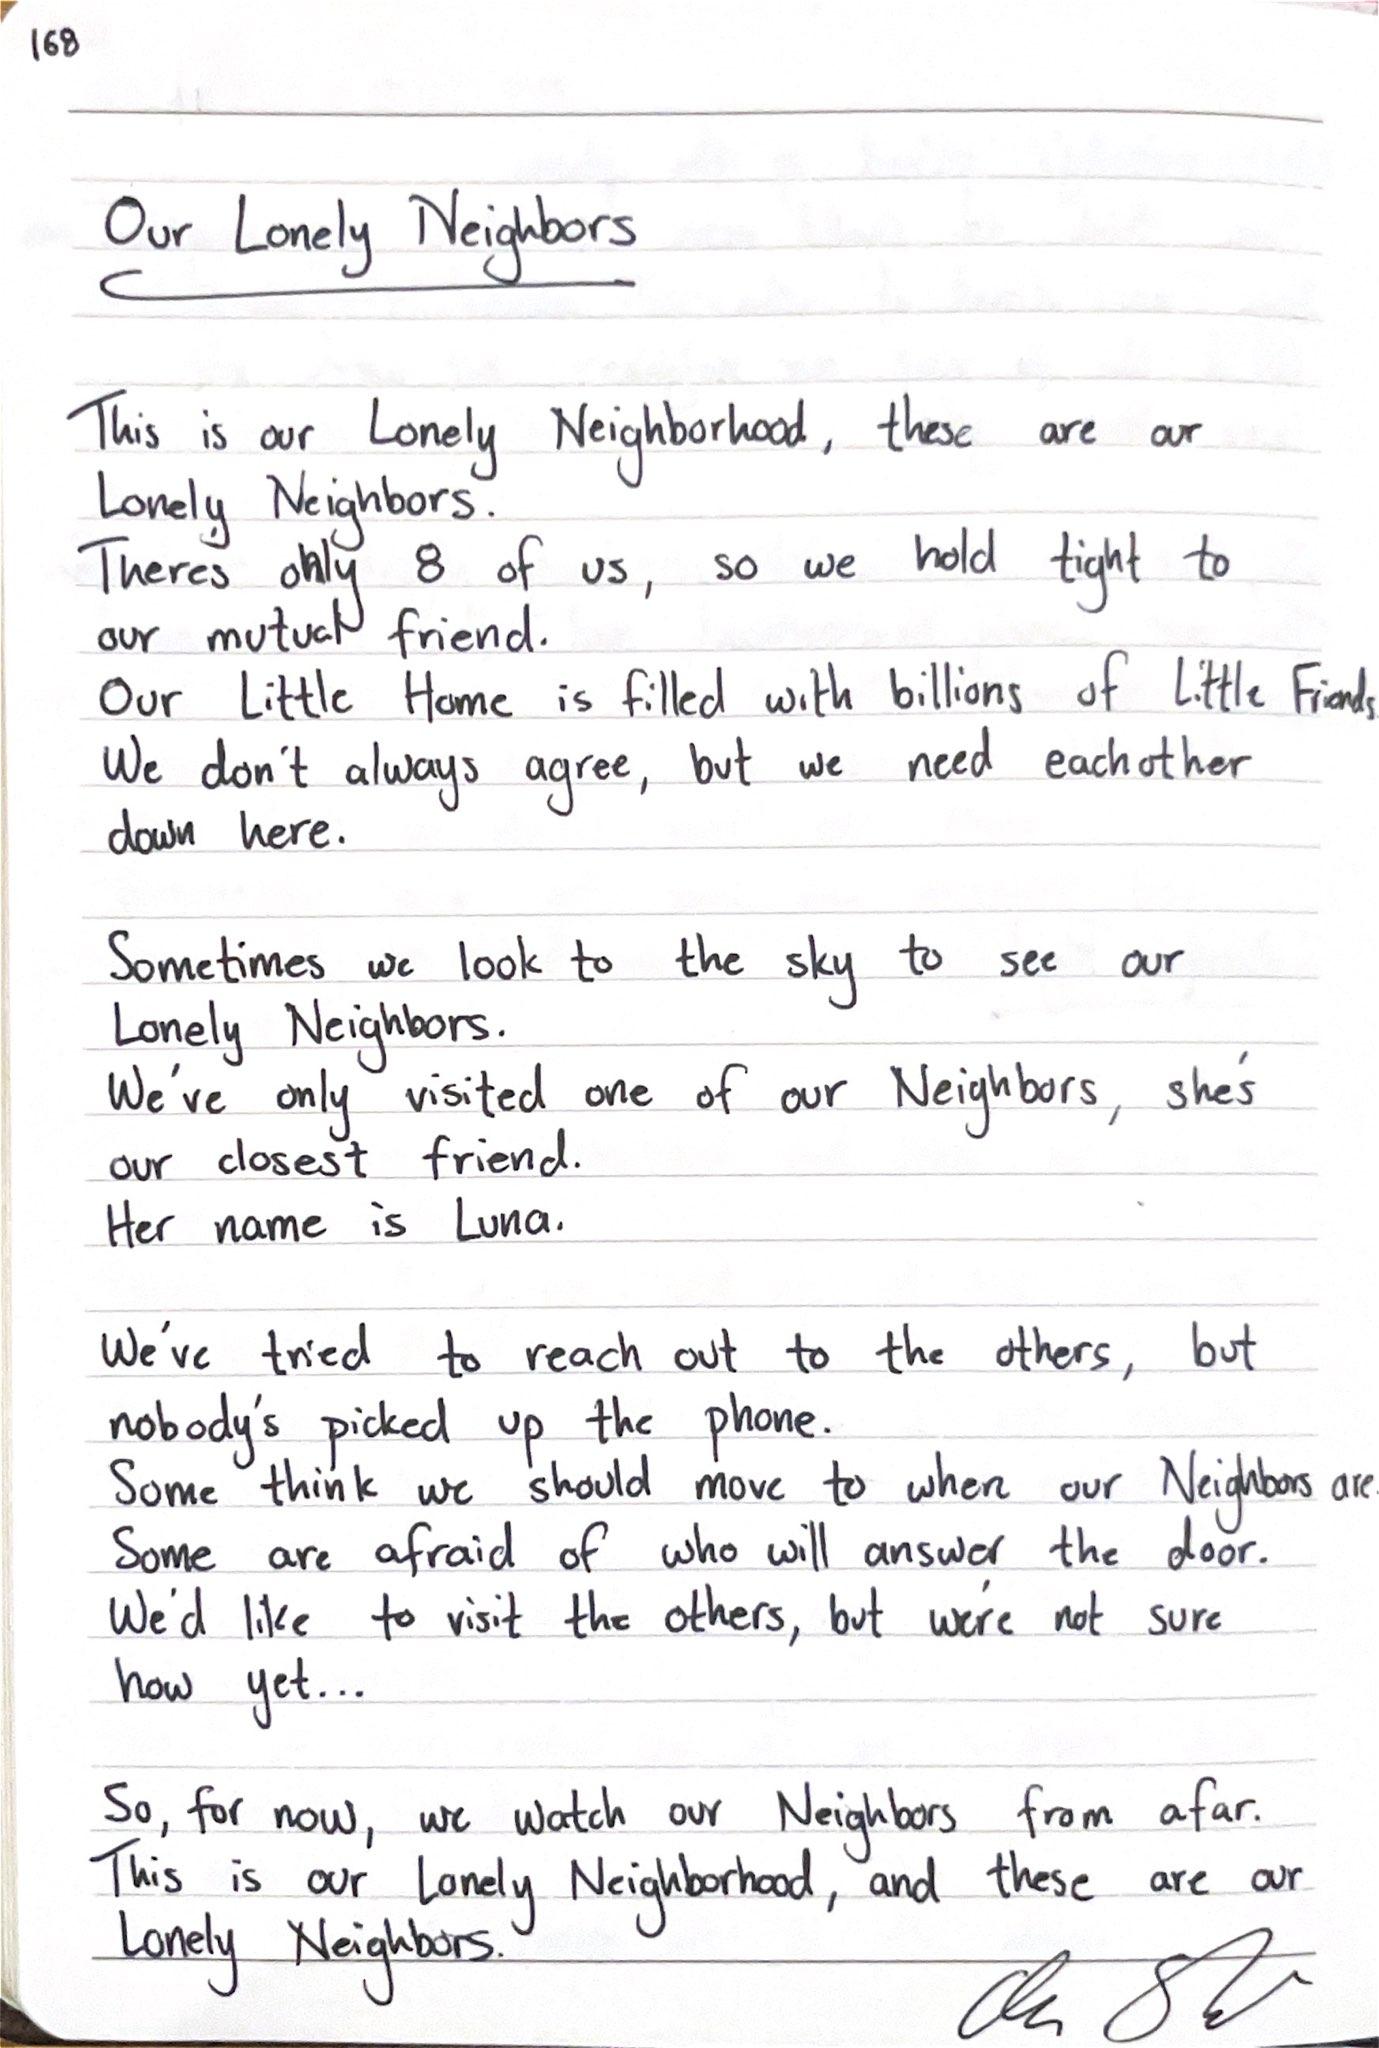 168
Our Lonely Neighbors
This is our Lonely Neighborhood, these are our
Lonely Neighbors.
Theres only 8 of us, so we hold tight to
our mutual friend.
Our Little Home is filled with billions of Little Friends.
We don't always agree, but we need eachother
down here.
Sometimes we look to the sky to see our
Lonely Neighbors.
We've only visited one of our Neighbors, she's
our closest friend.
Her name is Luna.
We've tried to reach out to the others, but
nobody's picked up the phone.
Some think we should move to when our Neighbors are.
Some are afraid of who will answer the door.
We'd like to visit the others, but we're not sure
how yet...
So, for now, we watch our Neighbors from afar.
This is our Lonely Neighborhood, and these are our
Lonely Neighbors.